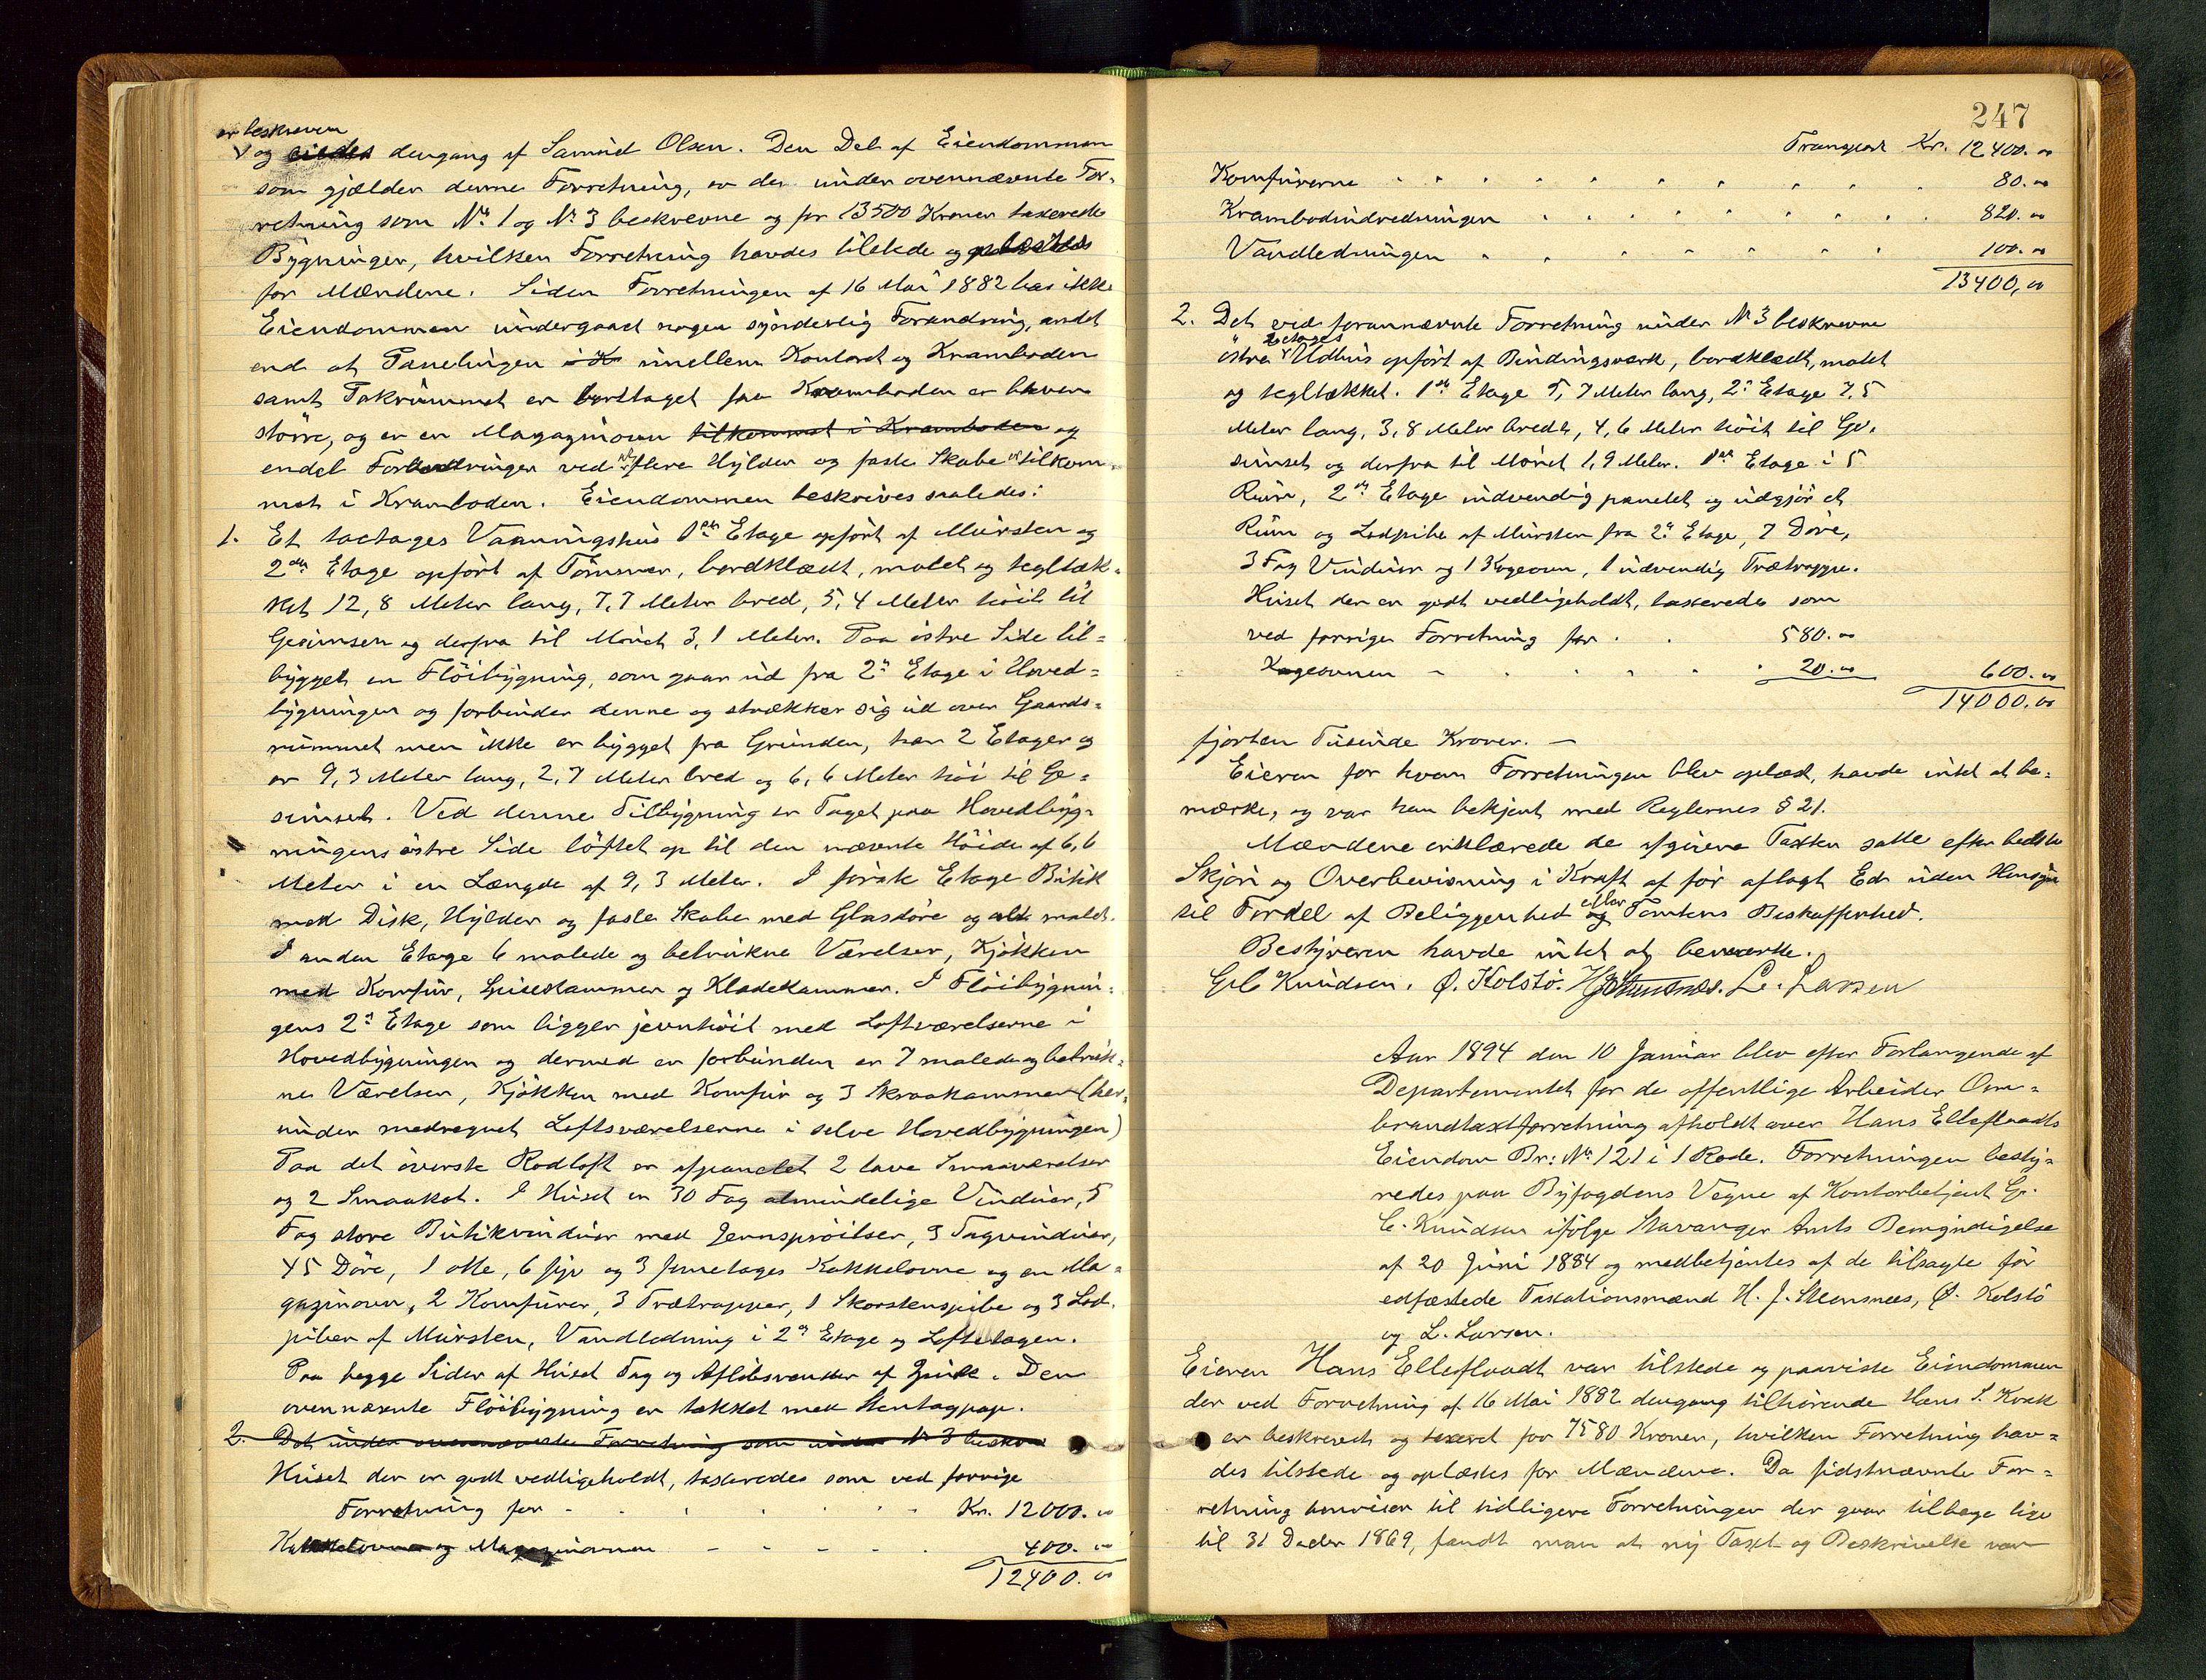 er beskreven
og eiedes dengang af Samuel Olsen. Den Del af Eiendommen
som gjælder denne Forretning, er den under ovennævnte For-
retning som No. 1 og No. 3 beskrevne og for 13500 Kroner taxerede
Bygninger, hvilken Forretning havdes tilstede og oplæstes
for Mændene. Siden Forretningen af 16 Mai 1882 har ikke
Eiendommen undergaaet nogen synderlig Forandring, andet
end at Panelingen i K imellem Kontoret og Kramboden
samt Takrummet er borttaget saa Kramboden er bleven
større, og er en Magazinovn tilkommet i Kramboden og
endel Forbedringer ved flere Hylder og faste Skabe er tilkom-
met i Kramboden. Eiendommen beskrives saaledes:
1. Et toetages Vaaningshus 1ste Etage opført af Mursten og
2den Etage opført af Tømmer, bordklædt, malet og tegltæk-
ket 12,8 Meter lang, 7,7 Meter bred, 5,4 Meter høit til
Gesimsen og derfra til Mønet 3,1 Meter. Paa østre Side til-
bygget en Fløibygning, som gaar ud fra 2n Etage i Hoved-
bygningen og forbinder denne og strækker sig ud over Gaards-
rummet men ikke er bygget fra Grunden, har 2 Etager og
er 9,3 Meter lang, 2,7 Meter bred og 6,6 Meter høi til Ge-
simset. Ved denne Tilbygning er Taget paa Hovedbyg-
ningens østre Side løftet op til den nævnte Høide af 6,6
Meter i en Længde af 9,3 Meter. I første Etage Butik
med Disk, Hylder og faste Skabe med Glasdøre og alt malet.
I anden Etage 6 malede og betrukne Værelser, Kjøkken
med Komfur, Spisekammer og Klædekammer. I Fløibygnin-
gens 2n Etage som ligger jevnhøit med Loftsværelserne i
Hovedbygningen og dermed er forbunden er 7 malede og betruk-
ne Værelser, Kjøkken med Komfur og 3 Skraakammer (her-
under medregnet Loftsværelserne i selve Hovedbygningen)
Paa det øverste Rodloft er afpanelet 2 lave Smaaværelser
og 2 Smaakot. I Huset er 30 Fag almindelige Vinduer, 5
Fag store Butikvinduer med Jernsprøilser, 3 Tagvinduer,
45 Døre, 1 otte, 6 fyr og 3 femetages Kakkelovne og en Ma-
gazinovn, 2 Komfurer, 3 Trætrapper, 1 Skorstenspibe og 3 Lod-
piber af Mursten, Vandledning i 2n Etage og Loftetagen.
Paa begge Sider af Huset Tag og Afløbsrender af Zink. Den
ovennævnte Fløibygning er tækket med Stentagpap.
2. Det under ovennævnte Forretning som under No 3 beskrev
Huset der er godt vedligeholdt, taxeredes som ved forrige
Forretning for Kr. 12000.00
Kakkelovne og Magazinovnen 400.00
12400.00
247
Transport Kr. 12400.00
Komfurerne 80.00
Krambodindredningen 820.00
Vandledningen 100.00
13400,00
2. Det ved forannævnte Forretning under No 3 beskrevne
2etages
østre Udhus opført af Bindingsværk, bordklædt, malet
og tegltækket. 1ste Etage 5,7 Meter lang, 2n Etage 7,5
Meter lang, 3,8 Meter bredt, 4,6 Meter høit til Ge-
simset og derfra til Mønet 1,9 Meter. 1ste Etage i 5
Rum, 2den Etage indvendig panelet og udgjør et
Rum og Lodpibe af Mursten fra 2n Etage, 7 Døre,
3 Fag Vinduer og 1 Kogeovn, 1 udvendig Trætrappe.
Huset der er godt vedligeholdt, taxeredes som
ved forrige Forretning for 580.00
Kogeovnen 20.00 600.00
14000.00
fjorten Tusinde Kroner. —
Eieren for hvem Forretningen blev oplæst, havde intet at be-
mærke, og var han bekjent med Reglernes § 21.
Mændene erklærede de afgivne Taxter satte efter bedste
Skjøn og Overbevisning i Kraft af før aflagt Ed uden Hensyn
til Fordel af Beliggenhed og eller Tomtens Beskaffenhed.
Bestyreren havde intet at bemærke.
G. C. Knudsen. Ø. Kolstø. H J Stensnæs. L. Larsen
Aar 1894 den 10 Januar blev efter Forlangende af
Departementet for de offentlige Arbeider Om-
brandtaxtforretning afholdt over Hans Elleflaadts
Eiendom Br: No. 121 i 1 Rode. Forretningen besty-
redes paa Byfogdens Vegne af Kontorbetjent G.
C. Knudsen ifølge Stavanger Amts Bemyndigelse
af 20 Juni 1884 og medbetjentes af de tilsagte før
edfæstede Taxationsmænd H. J. Stensnæs, Ø. Kolstø
og L. Larsen.
Eieren Hans Elleflaadt var tilstede og paaviste Eiendommen
der ved Forretning af 16 Mai 1882 dengang tilhørende Hans S. Kvak
er beskrevet og taxeret for 7580 Kroner, hvilken Forretning hav-
des tilstede og oplæstes for Mændene. Da sidstnævnte For-
retning henviser til tidligere Forretninger der gaar tilbage lige
til 31 Decbr 1869, fandt man at ny Taxt og Beskrivelse var